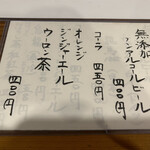 無添加
ノンアルコールビール
四〇〇円
コーラ 四五〇円
オレンジ
ジンジャーエール
ウーロン茶 四〇〇円